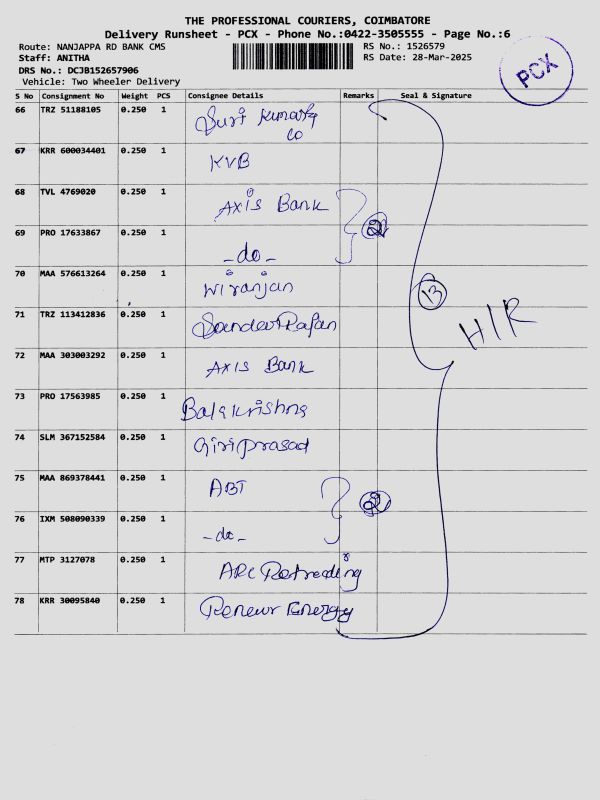 THE PROFESSIONAL COURIERS, COIMBATORE
Delivery Runsheet - PCX - Phone No.:0422-3505555 - Page No.:6
Route: NANJAPPA RD BANK CMS
RS No.: 1526579
Staff: ANITHA
RS Date: 28-Mar-2025
DRS No.: DCJB152657906
Vehicle: Two Wheeler Delivery
PCX
S No Consignment No Weight PCS Consignee Details Remarks Seal & Signature
66 TRZ 51188105 0.250 1
Co
67 KRR 600034401 0.250 1 KVB
68 TVL 4769020 0.250 1 Axis Bank
2
69 PRO 17633867 0.250 1 -do-
70 MAA 576613264 0.250 1 Niranjan
13
71 TRZ 113412836 0.250 1
H/R
72 MAA 303003292 0.250 1 Axis Bank
73 PRO 17563985 0.250 1 Balakrishna
74 SLM 367152584 0.250 1 Giriprasad
75 MAA 869378441 0.250 1 ABT
2
76 IXM 508090339 0.250 1 -do-
77 MTP 3127078 0.250 1 ARC Retreading
78 KRR 30095840 0.250 1 Renewr Energy